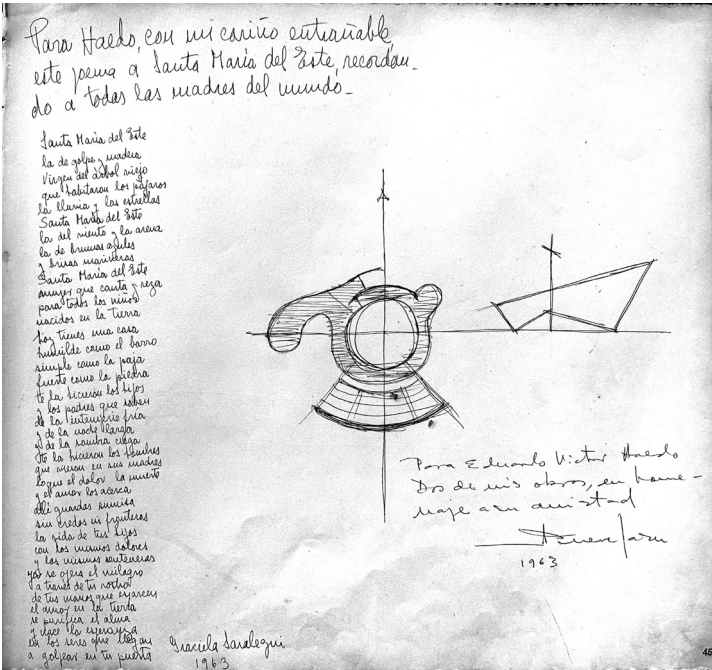 Para Haedo, con mi cariño entrañable
este poema a Santa María del Este, recordan-
do a todas las madres del mundo-
Santa María del Este
la de golpe y madera
Virgen del árbol viejo
que habitaron los pájaros
la lluvia y las estrellas
Santa María del Este
la del viento y la arena
la de brumas azules
y brisas marineras
Santa María del Este
mujer que canta y reza
para todos los niños
nacidos en la tierra
hoy tienes una casa
humilde como el barro
simple como la paja
fuerte como la piedra
te la hicieron los hijos
y los padres que saben
de la intemperie fría
y de la noche larga
y de la sombra ciega
te la hicieron los hombres
que vieron en sus madres
lo que el dolor la muerte
y el amor los acerca
allí guardas sumisa
sin credos ni fronteras
la vida de tus hijos
con los mismos dolores
y las mismas
ya se opera el milagro
a través de tu rostro
de tus manos que esparcen
el amor en la tierra
se purifica el alma
y nace la esperanza
en los seres que llegan
a golpear en tu puerta
Graciela Saralegui
1963
Para Eduardo Victor Haedo
Dos de mis obras, en home-
naje a su amistad
1963
45